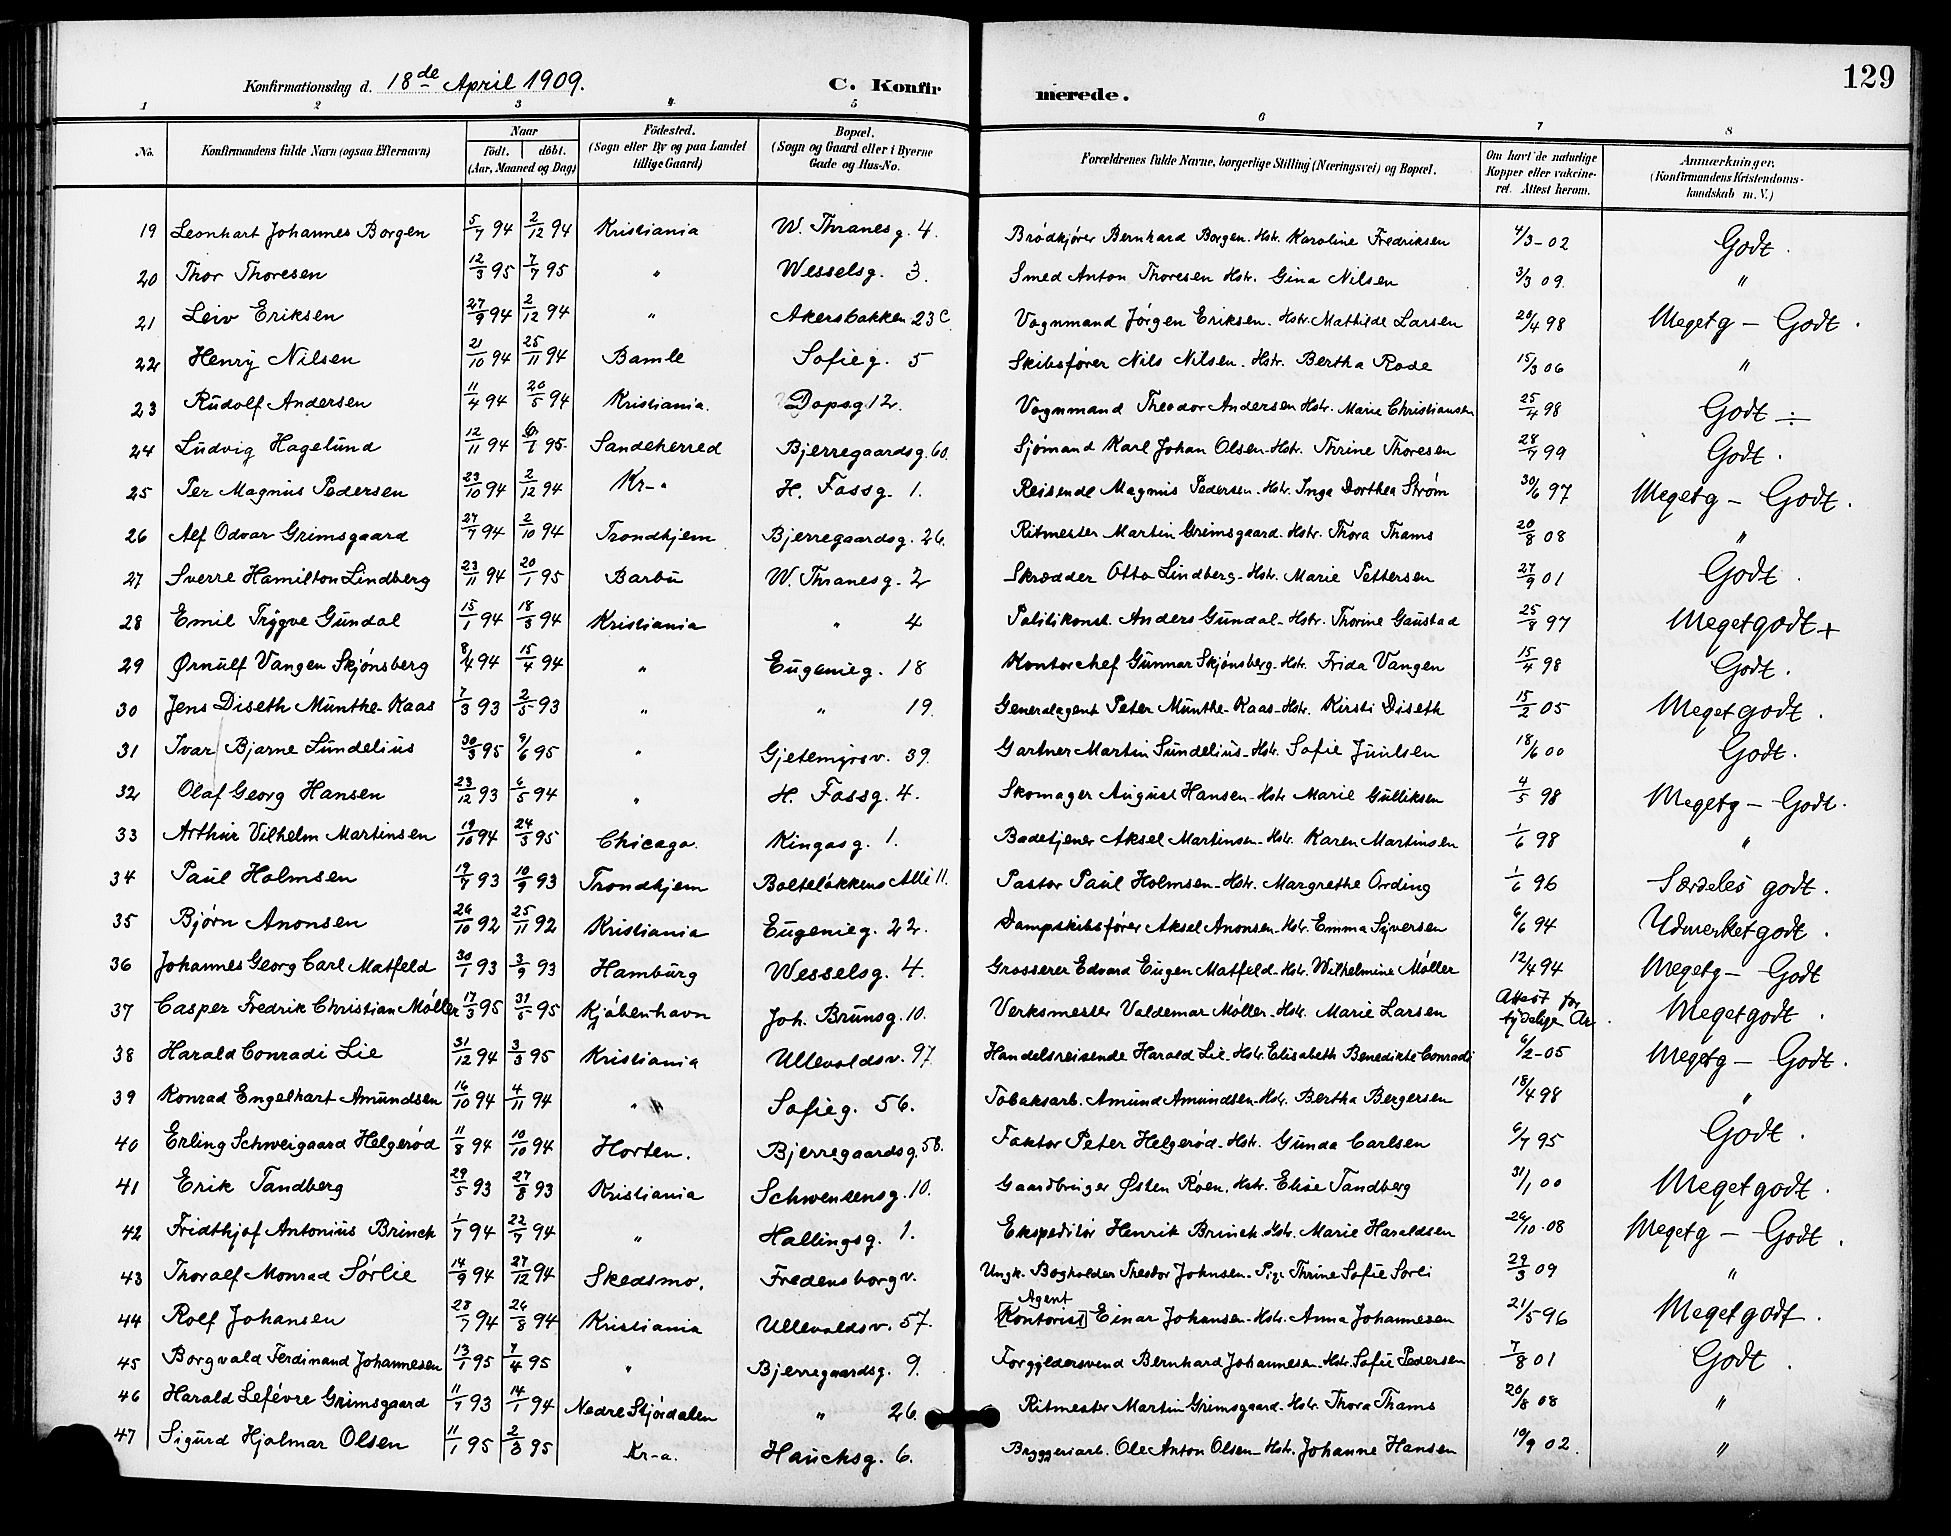 129
Konfirmationsdag d. 18de April 1909. C. Konfirmerede.
1 2 3 4 5 6 7 8
No. Konfirmandens fulde Navn (ogsaa Efternavn) Naar født. døbt. (Aar, Maaned og Dag) Fødested. (Sogn eller By og paa Landet tillige Gaard) Bopæl. (Sogn og Gaard eller i Byerne Gade og Hus-No. Forældrenes fulde Navne, borgerlige Stilling (Næringsvei) og Bopæl. Om havt de naturlige Kopper eller vakcineret. Attest herom. Anmærkninger. (Konfirmandens Kristendomskundskab m. V.)
19 Leonhart Johannes Borgen 5/7 94 2/12 94 Kristiania W. Thranesg. 4. Brødkjører Bernhard Borgen. Hstr. Karoline Fredriksen 4/3-02 Godt.
20 Thor Thoresen 12/3 95 7/7 95 " Wesselsg. 3. Smed Anton Thoresen Hstr. Gina Nilsen 3/3 09. "
21 Leiv Eriksen 27/9 94 2/12 94 " Akersbakken 23c Vognmand Jørgen Eriksen. Hstr. Mathilde Larsen 20/4 98 Megetg - Godt.
22 Henry Nilsen 21/10 94 25/11 94 Bamle Sofieg. 5 Skibsfører Nils Nilsen. Hstr. Bertha Rode 15/3 06 "
23 Rudolf Andersen 11/4 94 20/5 94 Kristiania. Dopsg. 12. Vognmand Theodor Andersen Hstr. Marie Christiansen 25/4 98 Godt ÷
24 Ludvig Hagelund 12/11 94 6/1 95. Sandeherred Bjerregaardsg. 60. Sjømand Karl Johan Olsen - Hstr. Thrine Thoresen 28/7 99 Godt.
25 Per Magnus Pedersen 23/10 94 2/12 94 Kr-a H. Fossg. 1. Reisende Magnus Pedersen. Hstr. Inga Dorthea Strøm 30/6 97 Megetg - Godt.
26 Alf Odvar Grimsgaard 27/7 94 2/10 94 Trondhjem Bjerregaardsg. 26. Ritmester Martin Grimsgaard. Hstr. Thora Thams 20/8 08 "
27 Sverre Hamilton Lindberg 23/11 94 20/1 95 Barbu W. Thranesg. 2 Skrædder Otto Lindberg - Hstr. Marie Pettersen 27/9 01 Godt.
28 Emil Trygve Gundal 15/1 94 18/3 94 Kristiania " 4 Politikonst. Anders Gundal - Hstr. Thorine Gaustad 25/8 97 Megetgodt +
29 Ørnulf Vangen Skjønsberg 8/4 94 15/4 94 " Eugenieg. 18 Kontorchef Gunnar Skjønsberg - Hstr. Frida Vangen 15/4 98 Godt.
30 Jens Diseth Munthe-Kaas 7/3 93 2/5 93 " " 19. Generalagent Peter Munthe-Kaas - Hstr. Kirsti Diseth 15/2 05 Megetgodt.
31 Ivar Bjarne Sundelius 30/3 95 9/6 95 " Gjetemyrsv. 39. Gartner Martin Sundelius - Hstr. Sofie Juulsen 18/6 00 Godt.
32 Olaf Georg Hansen 23/12 93 6/5 94 " H. Fossg. 4. Skomager August Hansen - Hstr Marie Gulliksen 4/5 98 Megetg - Godt.
33 Arthur Vilhelm Martinsen 19/10 94 24/3 95 Chicago. Kingosg. 1. Badetjener Aksel Martinsen - Hstr. Karen Martinsen 1/6 98 "
34 Paul Holmsen 19/7 93 10/9 93 Trondhjem Bolteløkkens Alle 11. Pastor Paul Holmsen - Hstr. Margrethe Ording 1/6 96 Særdeles godt.
35 Bjørn Anonsen 26/10 92 25/11 92 Kristiania Eugenieg. 22. Dampskibsfører Aksel Anonsen - Hstr. Emma Syversen 6/6 94 Udmerketgodt.
36 Johannes Georg Carl Matfeld 30/1 93 3/9 93 Hamburg Wesselsg. 4. Grosserer Edvard Eugen Matfeld - Hstr. Wilhelmine Møller 12/4 94 Megetg - Godt
37 Casper Fredrik Christian Møller 17/3 95 31/5 95 Kjøbenhavn Joh. Brunsg. 10. Verksmester Valdemar Møller - Hstr. Marie Larsen Attest for tydelige Ar. Megetgodt.
38 Harald Conradi Lie 31/12 94 3/3 95 Kristiania Ullevoldsv. 97. Handelsreisende Harald Lie - Hstr. Elisabeth Benedikte Conradi 6/2-05 Megetg - Godt.
39 Konrad Engelhart Amundsen 16/10 94 4/11 94 " Sofieg. 56. Tobaksarb. Amund Amundsen - Hstr. Bertha Bergersen 18/4 98 "
40 Erling Schweigaard Helgerød 11/8 94 10/10 94 Horten. Bjerregaardsg. 58. Faktor Peter Helgerød - Hstr. Gunda Carlsen 6/7 95 Godt.
41 Erik Tandberg 29/5 93 27/8 93 Kristiania Schwensensg. 10. Gaardbruger Østen Røen. Hstr. Elise Tandberg 31/1 00 Megetgodt.
42 Fridthjof Antonius Brinck 1/7 94 22/7 94 " Hallingsg. 1. Ekspeditør Henrik Brinck. Hstr. Marie Haraldsen 26/10-08 Megetg - Godt.
43 Thoralf Monrad Sørlie 14/9 94 27/12 94 Skedsmo. Fredensborgv. Ungk. Bogholder Theodor Johnsen - Pige Thrine Sofie Sørli 29/3 09 "
44 Rolf Johansen 28/7 94 26/8 94 Kristiania Ullevoldsv. 57. [Kontorist] Agent Einar Johansen - Hstr. Anna Johannesen 21/5 96 Megetgodt.
45 Borgvald Ferdinand Johannesen 13/1 95 7/4 95 " Bjerregaardsg. 9. Forgyldersvend Bernhard Johannesen - Hstr. Sofie Pedersen 7/8 01 Godt.
46 Harald Lefévre Grimsgaard 11/7 93 14/1 94 Nedre Stjørdalen " 26. Ritmester Martin Grimsgaard - Hstr. Thora Thams 20/8 08 "
47 Sigurd Hjalmar Olsen 11/1 95 2/3 95 Kr-a. Hauchsg. 6. Bryggeriarb. Ole Anton Olsen - Hstr. Johanne Hansen 19/9 02. "